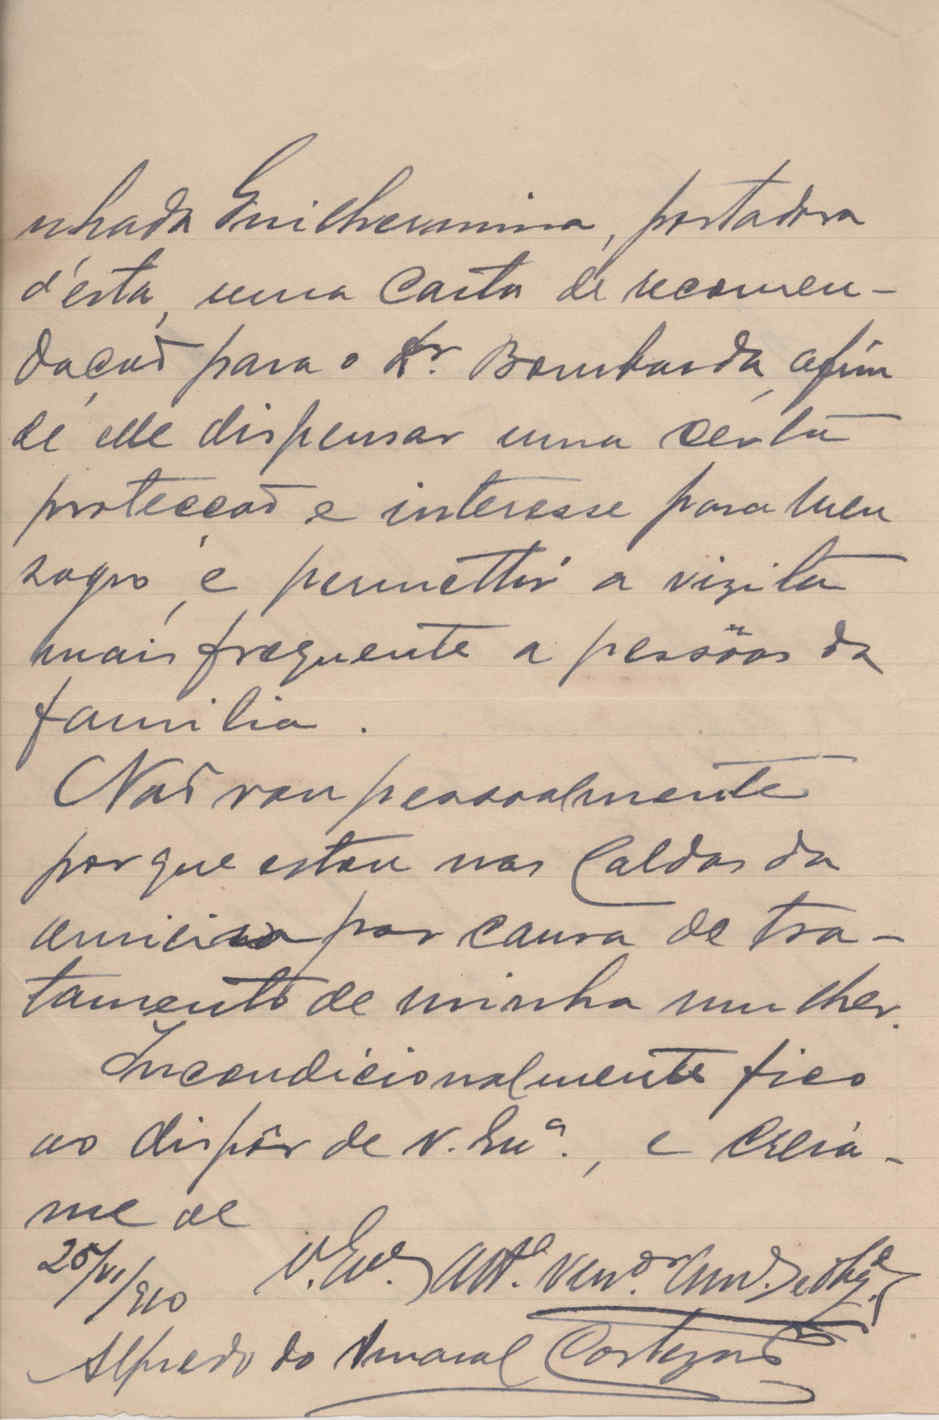 nhada Guilhermina, portadora
d'esta, uma carta de recomen-
dação para o Dr. Bombarda, afim
de elle dispensar uma certa
protecção e interesse para meu
sogro, e permettir a vizita
mais frequente a pessôas da
familia.
Não vou pessoalmente
porque estou nas Caldas da
por causa de tra-
tamento de minha mulher.
Incondicionalmente fico
ao dispôr de V. Exª., e creia-
me de
25/VI/910 V. Exª. attº. venºr.
Alfredo do Amaral